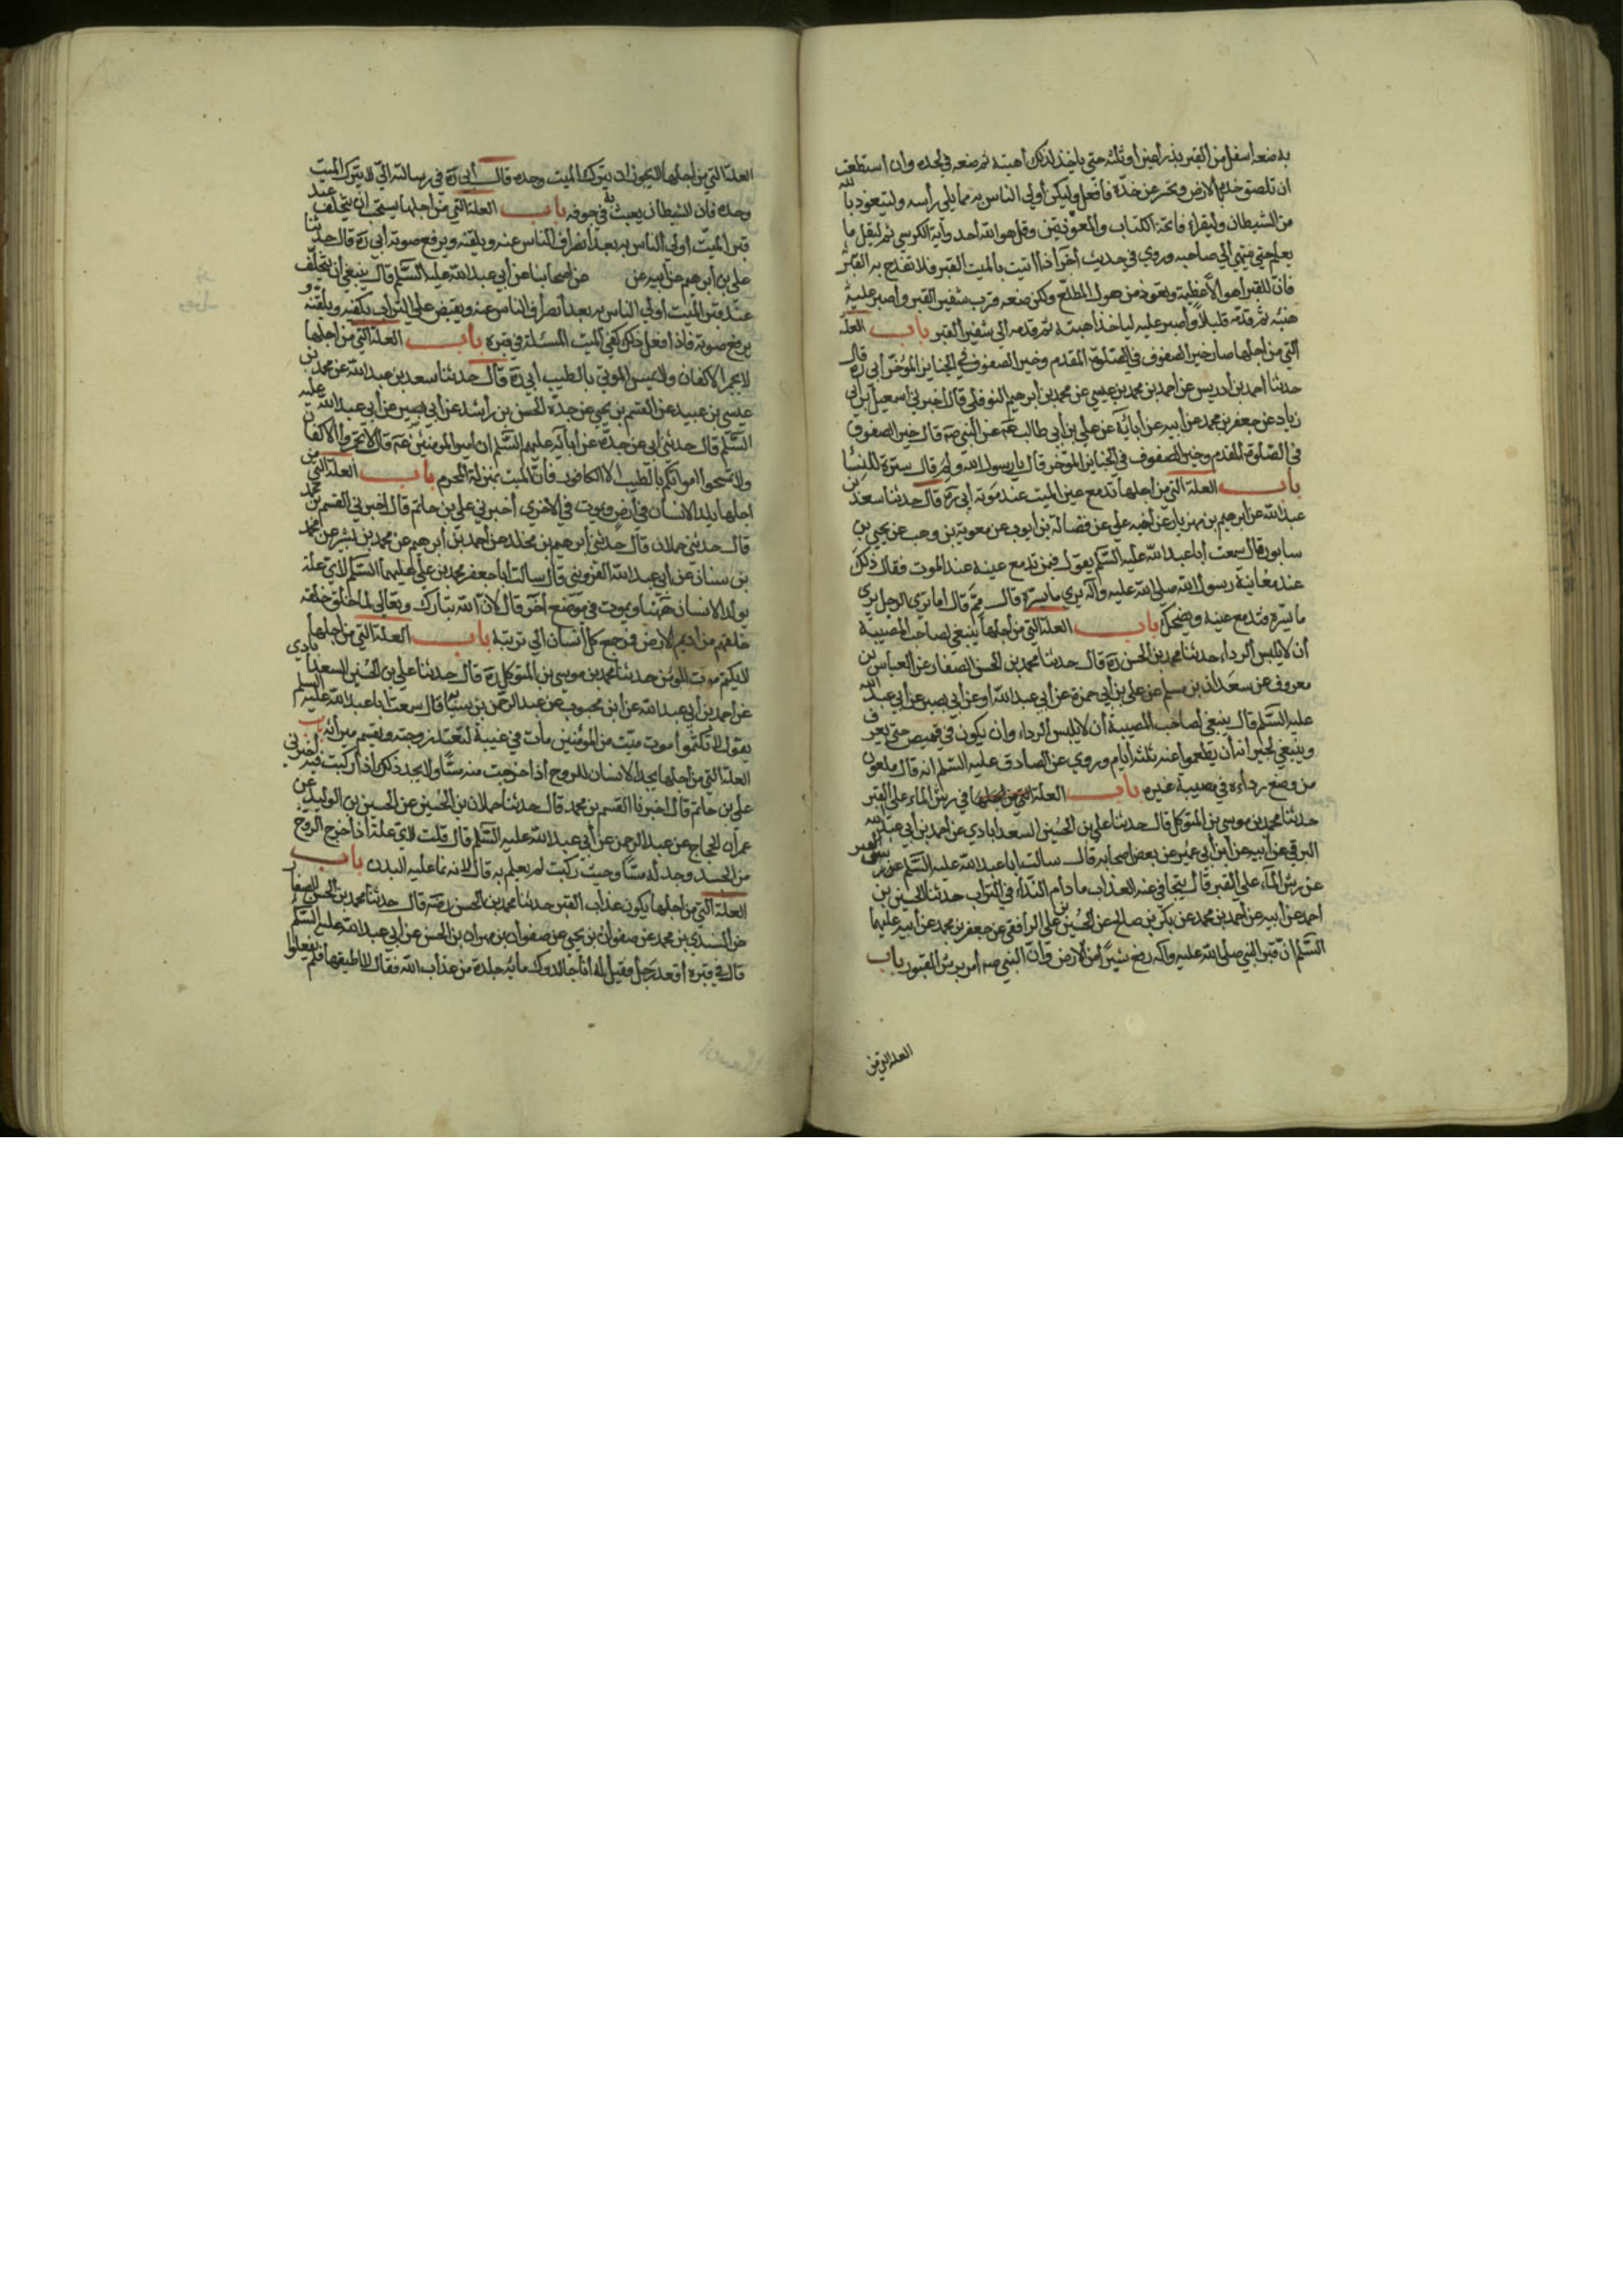 به ضعه اسفل من القبر بذراعين او ثلثه حتى ياخذ لذلك اهبته ثم ضعه في لحده وان استطعت
ان تلصق خده بالارض وتحسر عن خدّه فافعل وليكن اولى الناس به مما يلي رأسه وليتعوذ بالله
من الشيطان وليقراء فاتحة الكتاب والمعوذتين وقل هو الله احد واية الكرسي ثم ليقل ما
يعلم حتى ينتهي الى صاحبه وروي في حديث اخر اذا اتيت بالميت القبر فلا تفدح به القبر
فان للقبر اهوالا عظيمة وتعوذ من هول المطلع ولكن ضعه قرب شفير القبر واصبر عليه
هنيئه ثم قدمه قليلا واصبر عليه لياخذ اهبته ثم قدمه الى شفير القبر باب العلة
التي من اجلها صار خير الصفوف في الصلوة المقدم وخير الصفوف في الجنايز المؤخر ابي ره قال
حدثنا احمد بن ادريس عن احمد بن محمد بن عيسى عن محمد بن ابرهيم النوفلي قال اخبرني اسمعيل بن ابي
زياد عن جعفر بن محمد عن ابيه عن ابائه عن علي بن ابي طالب عم عن النبي صه قال خير الصفوف
في الصلوة المقدم وخير الصفوف في الجنايز المؤخر قال يا رسول الله ولم قال سترة للنساء
باب العلة التي من اجلها تدمع عين الميت عند موته ابي ره قال حدثنا سعد بن
عبد الله عن ابرهيم بن مهزيار عن اخيه علي عن فضالة بن ايوب عن معوية بن وهب عن يحيى بن
سابور قال سمعت ابا عبد الله عليه السّلم يقول فمن تدمع عينه عند الموت فقال ذلك
عند معاينة رسول الله صلى الله عليه واله يرى ما يسره قال ثمّ قال اما ترى الرجل يرى
ما يسره فتدمع عينه ويضحك باب العلة التي من اجلها ينبغي لصاحب المصيبة
أن لا يلبس الرداء حدثنا محمد بن الحسن ره قال حدثنا محمد بن الحسن الصفار عن العباس بن
معروف عن سعدان بن مسلم عن علي بن ابي حمزة عن ابي عبد الله او عن ابي بصير عن ابي عبد الله
عليه السّلم قال ينبغي لصاحب المصيبة أن لا يلبس الرداء وان يكون في قميص حتى يعرف
وينبغي لجيرانه أن يطعموا عنه ثلثة أيام وروي عن الصادق عليه السّلم انه قال ملعون
من وضع رداءه في مصيبة غيره باب العلة التي من اجلها في رش الماء على القبر
حدثنا محمد بن موسى بن المتوكل قال حدثنا علي بن الحسين السعد ابادي عن احمد بن ابي عبد الله
البرقي عن ابيه عن ابن ابي عمير عن بعض اصحابه قال سالت ابا عبد الله عليه السّلم
عن رش الماء على القبر قال يتجافى عنه العذاب ما دام الندا في التراب حدثنا الحسين بن
احمد عن ابيه عن احمد بن محمد عن بكر بن صالح عن الحسين بن علي الرافقي عن جعفر بن محمد عن ابيه عليهما
السّلم ان قبر النبي صلى الله عليه واله رفع شبرا من الارض وان النبي صه امر برش القبور باب
العلة التي من
العلة التي من اجلها لا يجوز ان يترك الميت وحده قال أبي ره في رسالته الي لا يترك الميت
وحده فان الشيطان يعبث به في جوفه باب العلة التي من اجلها يستحب ان يتخلف عند
قبر الميت اولى الناس به بعد انصراف الناس عنه ويلقنه ويرفع صوته ابي ره قال حدثنا
علي بن ابرهيم عن ابيه عن عن اصحابنا عن ابي عبد الله عليه السلم قال ينبغي ان يتخلف
عند قبر الميت اولى الناس به بعد انصراف الناس عنه ويقبض على التراب بكفيه ويلقنه و
يرفع صوته فاذا فعل ذلك كفي الميت المسئلة في قبره باب العلة التي من اجلها
لا يجمر الاكفان ولا يمس الموتى بالطيب أبي ره قال حدثنا سعد بن عبد الله عن محمد بن
عيسى بن عبيد عن القسم بن يحيى عن جده الحسن بن راشد عن ابي بصير عن ابي عبد الله عليه
السّلم قال حدثني ابي عن جده عن ابائه عليهم السّلم ان امير المومنين عم قال لا تجمروا الاكفان
ولا تمسحوا امواتكم بالطيب الا الكافور فان الميت بمنزلة المحرم باب العلة التي من
اجلها يلد الانسان في أرض ويموت في الاخرى أخبرني علي بن حاتم قال اخبرني القسم بن محمد
قال حدثني حملان قال حدثني ابرهيم بن مخلد عن احمد بن ابرهيم عن محمد بن بشير عن محمد
بن سنان عن ابي عبد الله القزويني قال سالت ابا جعفر محمد بن علي عليهما السّلم لاي علة
يولد الانسان ههنا ويموت في موضع اخر قال لان الله تبارك وتعالى لما خلق خلقه
خلقهم من اديم الارض فمرجع كل انسان الى تربته باب العلة التي من اجلها
لا يكتم موت المومن حدثنا محمد بن موسى بن المتوكل ره قال حدثنا علي بن الحسين السعدابادي
عن احمد بن أبي عبد الله عن ابن محبوب عن عبد الرحمن بن سيابه قال سمعت ابا عبد الله عليه السلم
يقول لا تكتموا موت ميت من المومنين مات في غيبة لتعتد زوجته ويقسم ميراثه باب
العلة التي من اجلها يجد الانسان للروح اذا خرجت منه مسّا ولا يجد ذلك اذا ركبت فيه أخبرني
علي بن حاتم قال اخبرنا القسم بن محمد قال حدثنا حملان بن الحسين عن الحسين بن الوليد عن
عمران الحجاج عن عبد الرحمن عن أبي عبد الله عليه السّلم قال قلت لاي علة اذا خرج الروح
من الجسد وجد له مسّا وحيث ركبت لم يعلم به قال لانه نما عليه البدن باب
العلة التي من اجلها يكون عذاب القبر حدثنا محمد بن الحسن رحمه قال حدثنا محمد بن الحسن الصفار
عن السندي بن محمد عن صفوان بن يحيى عن صفوان بن مهران بن الحسن عن ابي عبد الله عليه السّلم
قال في قبره أقعد رجل فقيل له انا جالدوك مائة جلدة من عذاب الله فقال لا اطيقها فلم يفعلوا